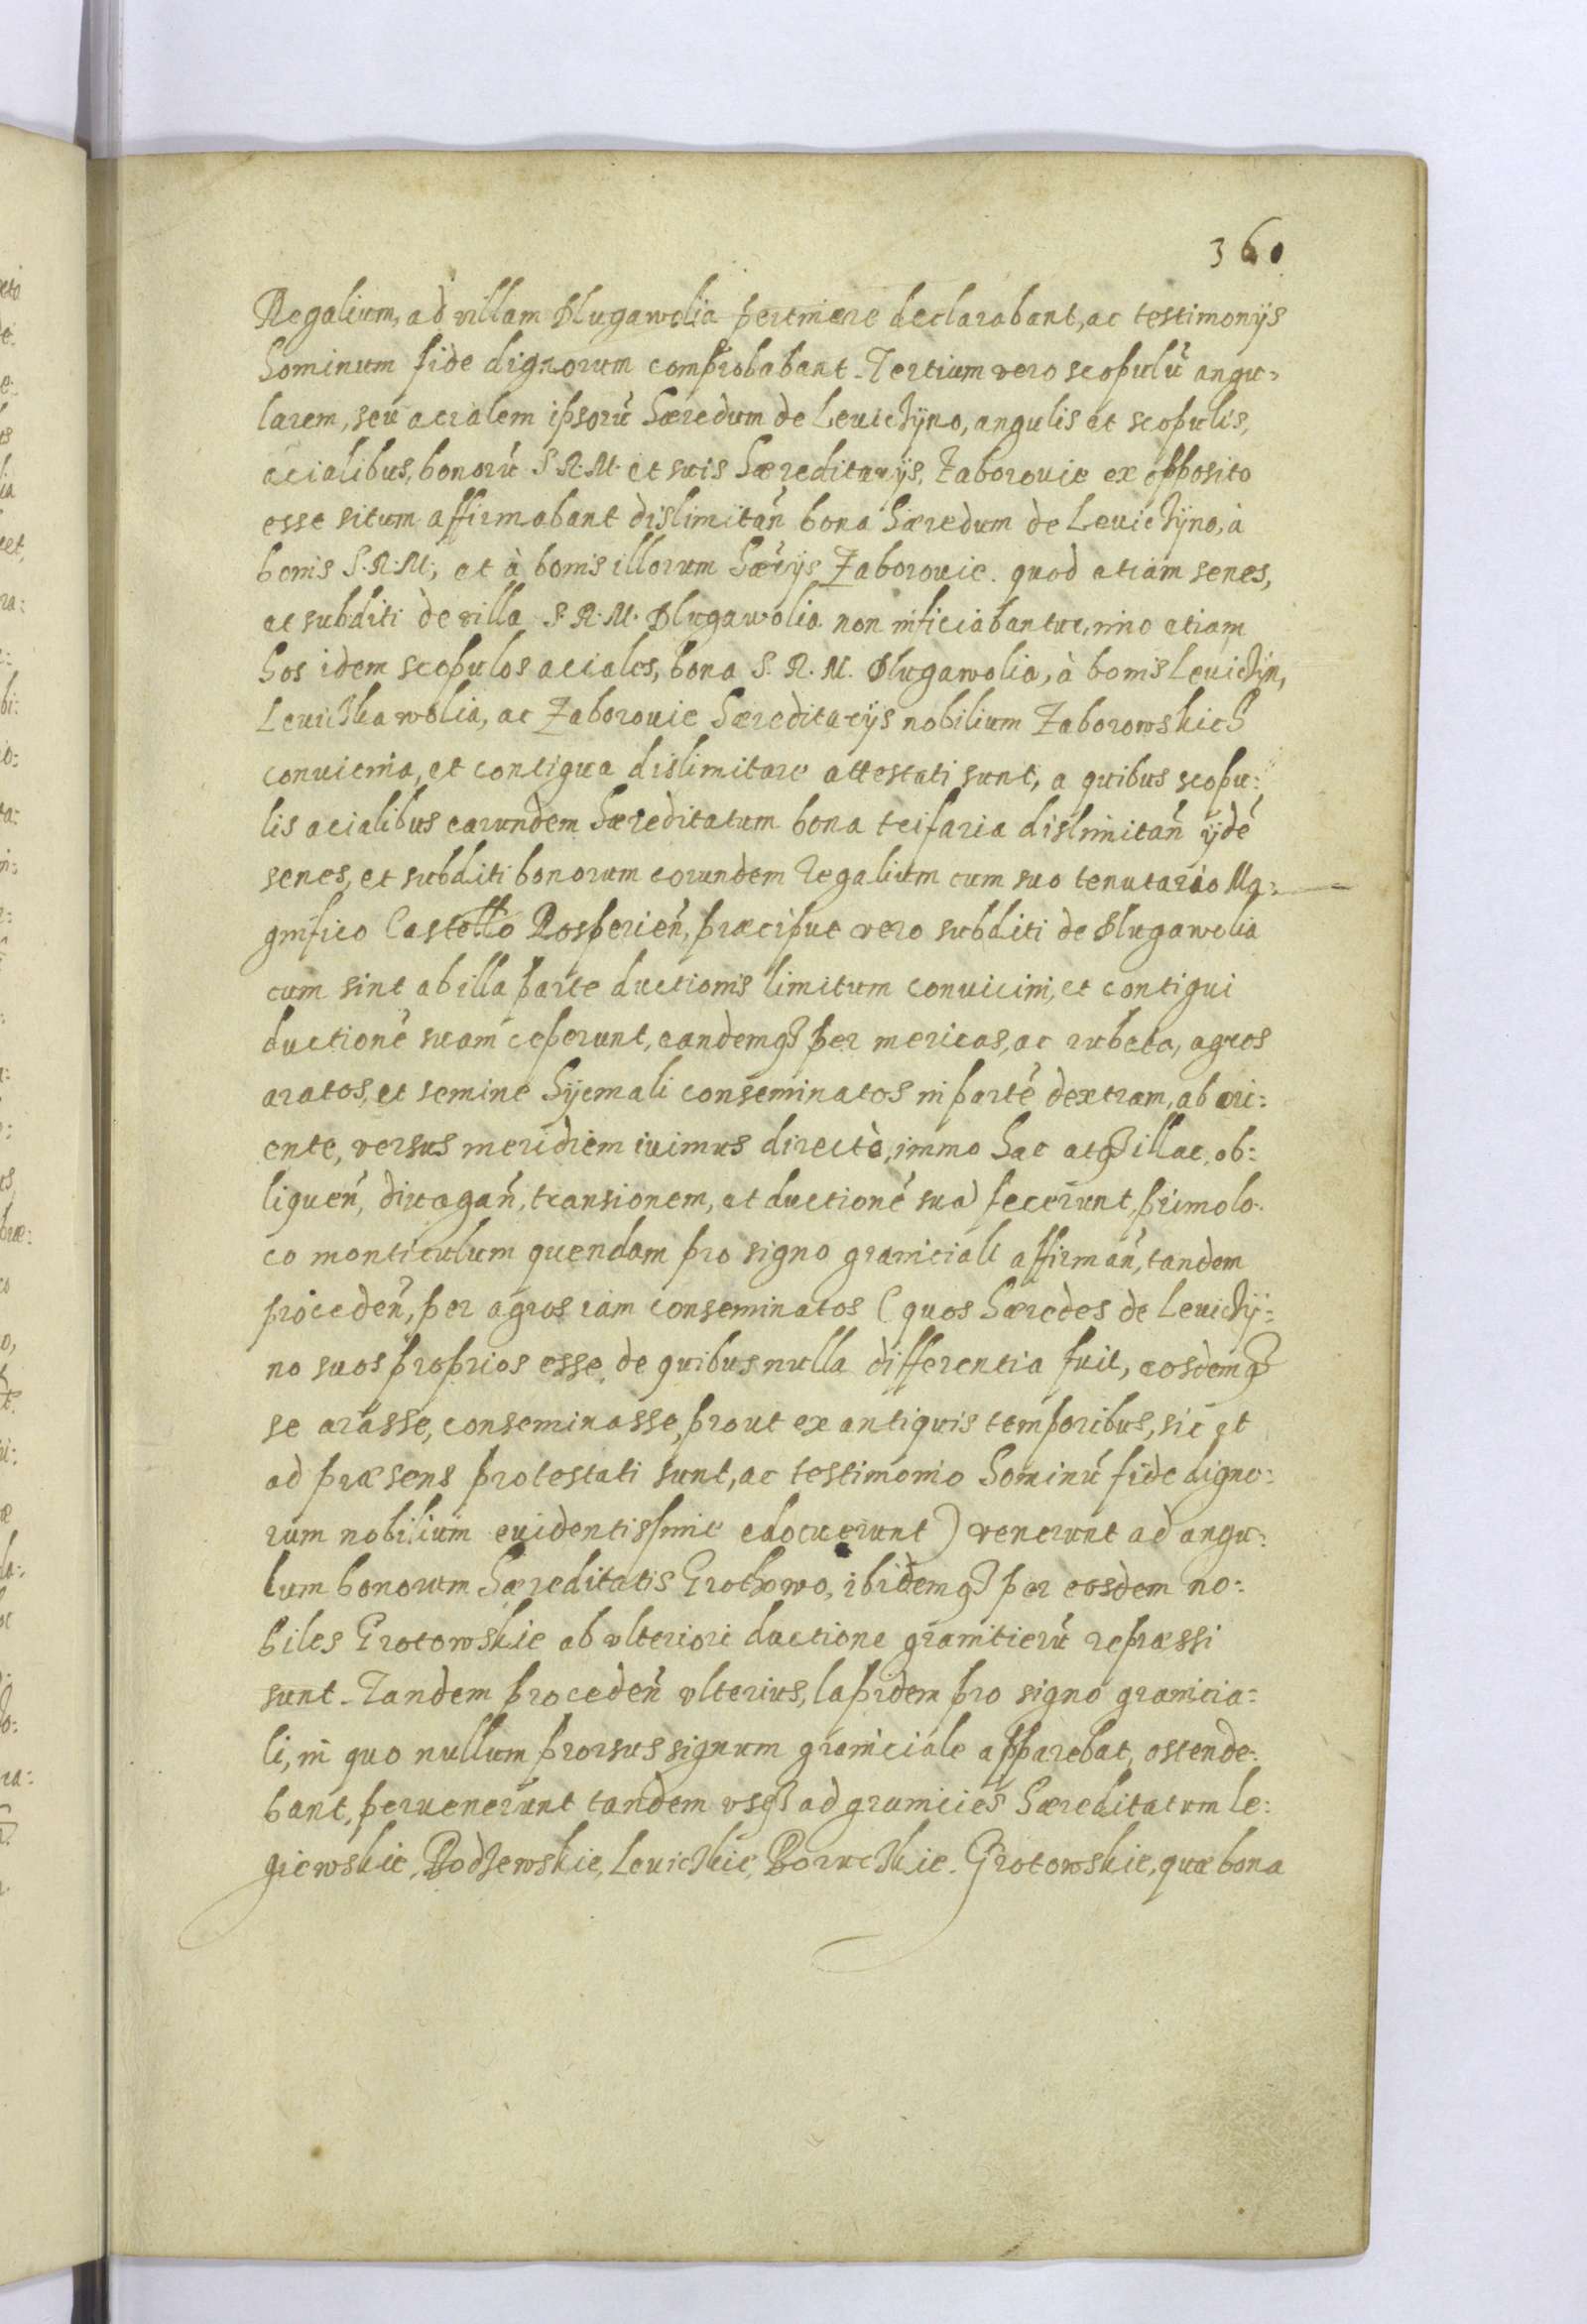 360
Regalium, ad villam Dlugawolia pertinere declarabant, ac testimonijs
hominum fide dignorum comprobabant. Tertium vero scopulũ angu:
larem, seu acialem ipsorũ Hæredum de Leuichijno, angulis et scopulis,
acialibus, bonorũ S. R. M. et suis Hæreditarijs, Zaborouie ex opposito
esse situm affirmabant dislimitañ bona Hæredum de Leuichijno, à
bonis S. R. M; et à bonis illorum Hærijs Zaborouie. quod etiam senes,
et subditi de villa S. R. M. Dlugawolia non inficiabantur, imo etiam
hos idem scopulos aciales, bona S. R. M. Dlugawolia, à bonis Leuichin,
Leuichkawolia, ac Zaborouie Hæreditarijs nobilium Zaborowskich
conuicinia, et contigua dislimitare attestati sunt, a quibus scopu:
lis acialibus earundem Hæreditatum bona trifaria dislimitañ ijdẽ
senes, et subditi bonorum eorundem Regalium cum suo tenutario Ma:
gnifico Castello Rosperieñ, præcipue vero subditi de Dlugawolia
cum sint ab illa parte ductionis limitum conuicini, et contigui
ductionẽ suam ceperunt, eandemq3 per mericas, ac rubeta, agros
aratos, et semine hijemali conseminatos in partẽ dextram, ab ori:
ente, versus meridiem iuimus directè, immo hac atq3 illac, ob:
liqueñ, diuagañ, transionem, et ductionẽ suã fecerunt, primo lo:
co monticulum quendam pro signo graniciali affirmañ, tandem
procedeñ, per agros iam conseminatos (quos Hæredes de Leuichij:
no suos proprios esse, de quibus nulla differentia fuit, eosdemq3
se arasse, conseminasse, prout ex antiquis temporibus, sic et
ad præsens protestati sunt, ac testimonio hominũ fide digno:
rum nobilium euidentissime edocuerunt) venerunt ad angu:
lum bonorum Hæreditatis Grothowo, ibidemq3 per eosdem no:
biles Grotowskie ab vlteriori ductione granitierũ repræssi
sunt. Tandem procedeñ vlterius, lapidem pro signo granicia:
li, in quo nullum prorsus signum graniciale apparebat, ostende:
bant, peruenerunt tandem vsq3 ad granicies Hæreditatum Le:
giewskie, Bodzewskie, Leuichkie, Boruchkie, Grotowskie, quæ bona